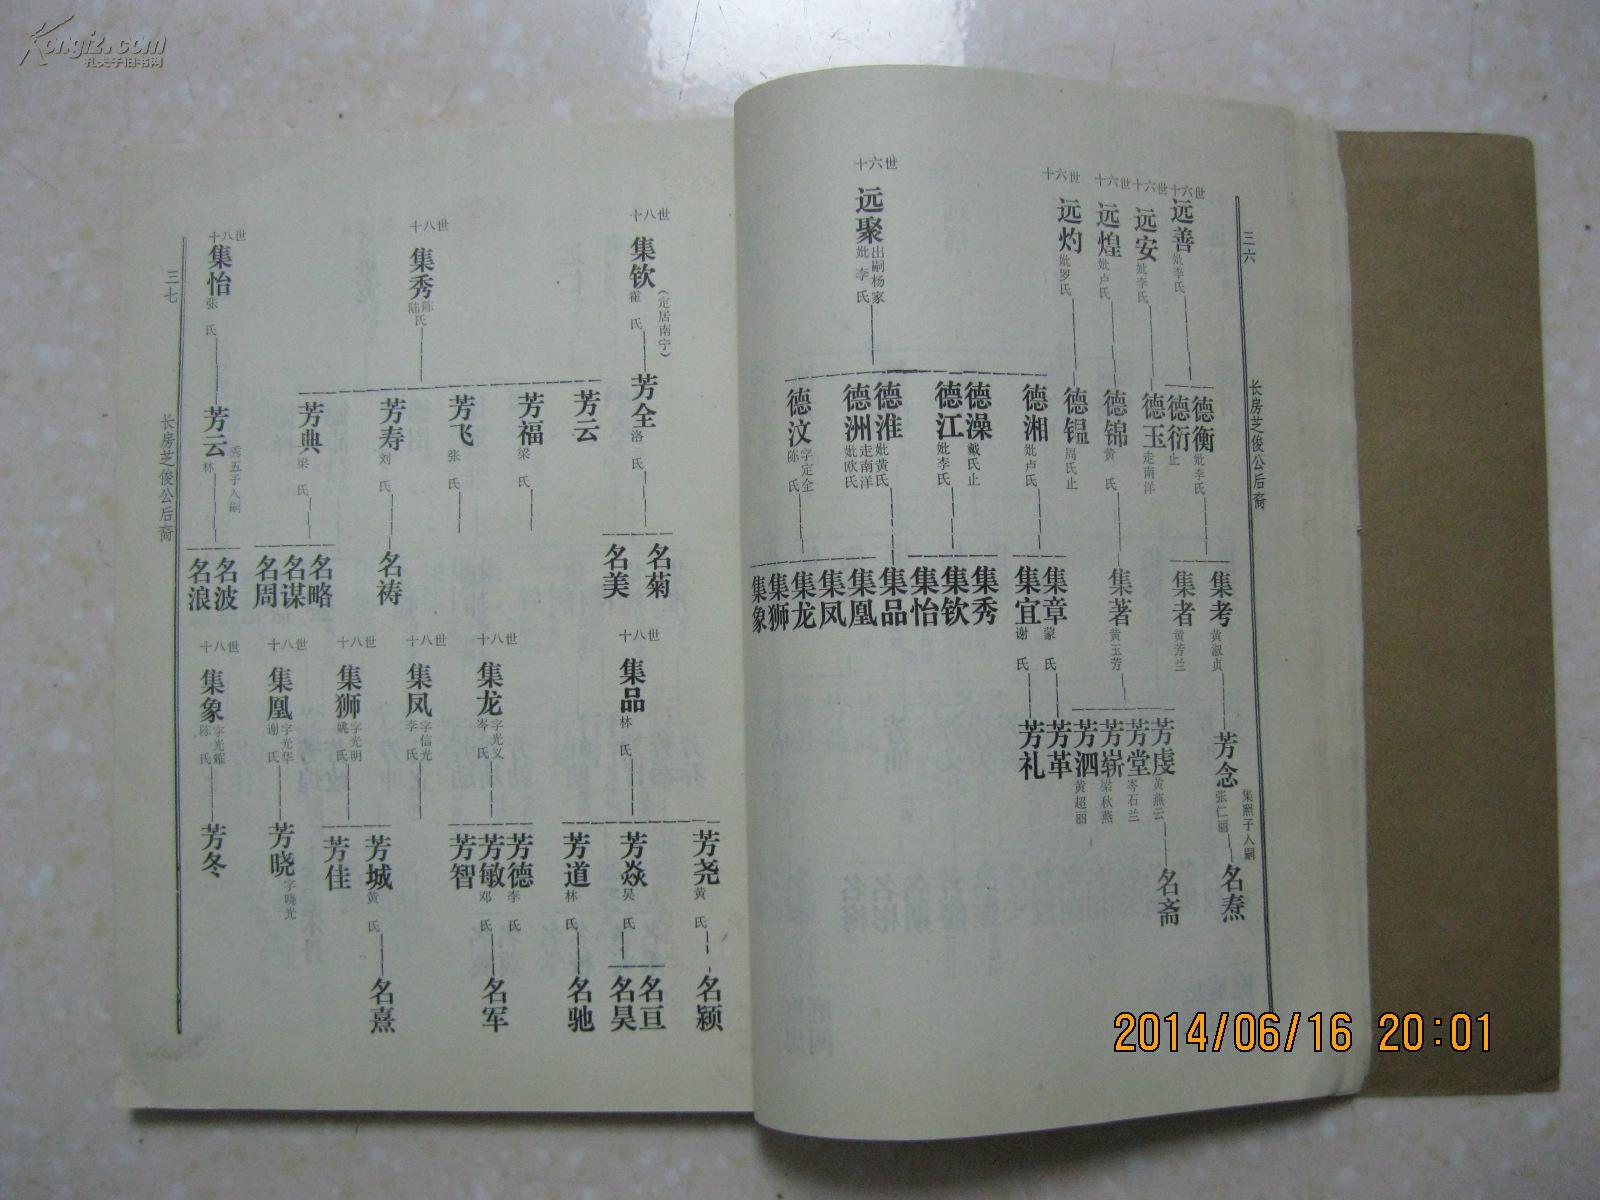 Kongfz.com
孔夫子旧书网
三六
长房芝俊公后裔
十六世
远善
妣李氏
德衡
妣李氏
集考
黄淑贞
芳念
集照子入嗣
张仁丽
名焘
德衍
止
十六世
远安
妣李氏
德玉
走南洋
集者
黄芳兰
十六世
远煌
妣卢氏
德锦
黄氏
集著
黄玉芳
芳虔
黄燕云
名斋
芳堂
岑石兰
芳崭
梁秋燕
芳泗
黄超丽
十六世
远灼
妣罗氏
德锟
周氏止
十六世
远聚
出嗣杨家
妣李氏
德湘
妣卢氏
集章
蒙氏
芳革
集宜
谢氏
芳礼
德澡
戴氏止
德江
妣李氏
集秀
集钦
集怡
德淮
妣黄氏
集品
德洲
走南洋
妣欧氏
集凰
集凤
德汶
字定全
陈氏
集龙
集狮
集象
三七
长房芝俊公后裔
十八世
集钦
霍氏
(定居南宁)
芳全
洛氏
名菊
名美
十八世
集秀
陈氏
陆
芳云
芳福
梁氏
芳飞
张氏
芳寿
刘氏
名祷
芳典
梁氏
名略
名谋
名周
十八世
集怡
张氏
芳云
秀五子入嗣
林氏
名波
名浪
十八世
集品
林氏
芳尧
黄氏
名颖
芳焱
吴氏
名亘
名昊
芳道
林氏
名驰
十八世
集龙
字光义
岑氏
芳德
李氏
芳敏
邓氏
名军
芳智
十八世
集凤
字信光
李氏
十八世
集狮
字光明
姚氏
芳城
黄氏
名熹
芳佳
十八世
集凰
字光华
谢氏
芳晓
字晓光
十八世
集象
字光耀
陈氏
芳冬
2014/06/16 20:01